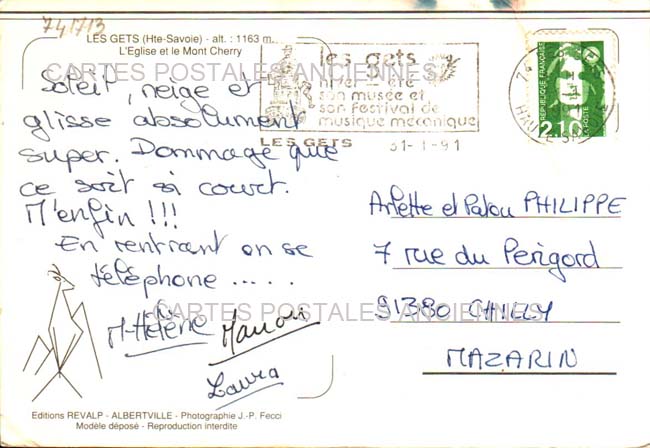 741713
LES GETS (Hte-Savoie) - alt. : 1163 m.
L'Eglise et le Mont Cherry
CARTES POSTALES ANCIENNES
les gets
hiver - été
son musée et
son festival de
musique mécanique
LES GETS 31-1-91
RÉPUBLIQUE FRANÇAISE
2,10
Soleil, neige et
glisse absolument
super. Dommage que
ce soit si court.
M'enfin !!!
En rentrant on se
téléphone .....
M-Hélène
Laura
Arlette et Palou PHILIPPE
7 rue du Périgord
91380 CHILLY
MAZARIN
CARTES POSTALES ANCIENNES
Editions REVALP - ALBERTVILLE - Photographie J.-P. Fecci
Modèle déposé - Reproduction interdite